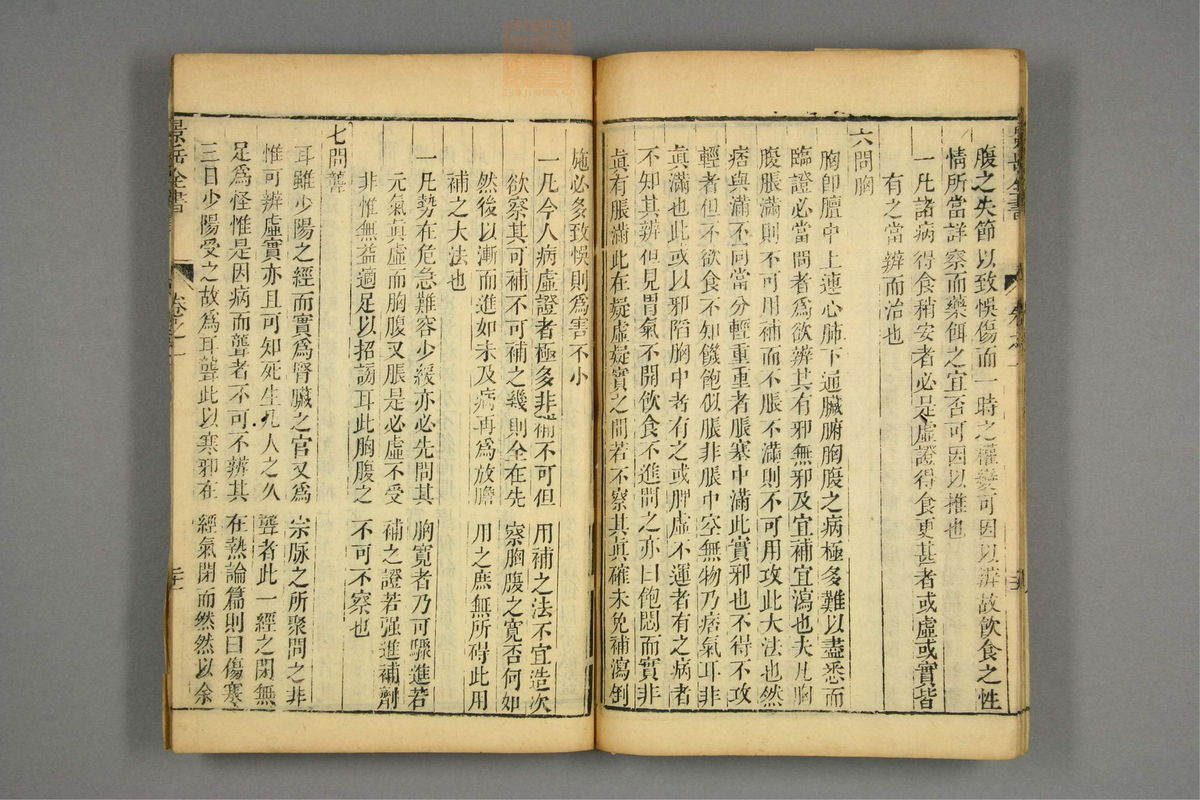 腹之失節以致悞傷而一時之權變可因以辨故飲食之性
情所當詳察而藥餌之宜否可因以推也
一凡諸病得食稍安者必是虛證得食更甚者或虛或實皆
有之當辨而治也
六問胸
胸卽膻中上連心肺下通臟腑胸腹之病極多難以盡悉而
臨證必當問者爲欲辨其有邪無邪及宜補宜瀉也夫凡胸
腹脹滿則不可用補而不脹不滿則不可用攻此大法也然
痞與滿不同當分輕重重者脹塞中滿此實邪也不得不攻
輕者但不欲食不知饑飽似脹非脹中空無物乃痞氣耳非
眞滿也此或以邪陷胸中者有之或脾虛不運者有之病者
不知其辨但見胃氣不開飲食不進問之亦曰飽悶而實非
眞有脹滿此在疑虛疑實之間若不察其眞確未免補瀉倒
施必多致悞則爲害不小
一凡今人病虛證者極多非補不可但用補之法不宜造次
欲察其可補不可補之幾則全在先察胸腹之寬否何如
然後以漸而進如未及病再爲放膽用之庶無所碍此用
補之大法也
一凡勢在危急難容少緩亦必先問其胸寬者乃可驟進若
元氣眞虛而胸腹又脹是必虛不受補之證若强進補劑
非惟無益適足以招謗耳此胸腹之不可不察也
七問聾
耳雖少陽之經而實爲腎臟之官又爲宗脉之所聚問之非
惟可辨虛實亦且可知死生凡人之久聾者此一經之閉無
足爲怪惟是因病而聾者不可不辨其在熱論篇則曰傷寒
三日少陽受之故爲耳聾此以寒邪在經氣閉而然然以余
景岳全書
卷之一
景岳全書
卷之一